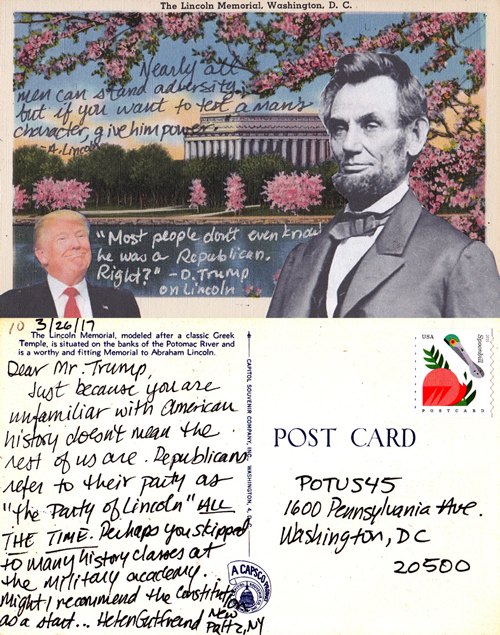 The Lincoln Memorial, Washington, D. C.
Nearly all
men can stand adversity,
but if you want to test a man's
character, give him power.
- A. Lincoln
"Most people don't even know
he was a Republican.
Right?" - D. Trump
on Lincoln
10 3/26/17
The Lincoln Memorial, modeled after a classic Greek
Temple, is situated on the banks of the Potomac River and
is a worthy and fitting Memorial to Abraham Lincoln.
Dear Mr. Trump,
Just because you are
unfamiliar with American
history doesn't mean the
rest of us are. Republicans
refer to their party as
"the Party of Lincoln" ALL
THE TIME. Perhaps you skipped
to many history classes at
the military academy.
Might I recommend the Constitution
as a start... Helen Gutfreund New
Paltz, NY
CAPITOL SOUVENIR COMPANY, INC., WASHINGTON, D. C.
A CAPSCO
USA
Spoonbill
POSTCARD
POST CARD
POTUS45
1600 Pennsylvania Ave.
Washington, DC
20500